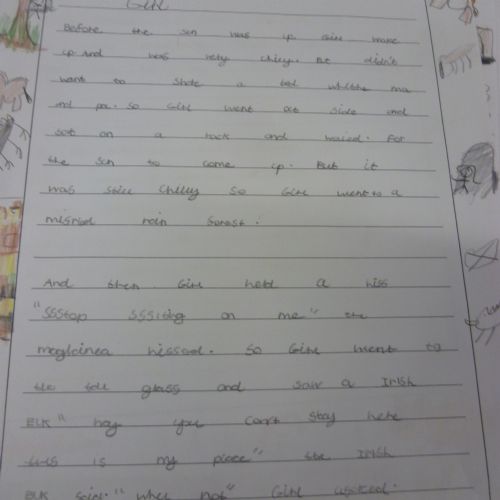 Girl
Before the sun was up Girl wake
up And was very chilly. He didn't
want to shae a bed whithe ma
and pa. so Girl went out side and
sat on a rock and waied. For
the sun to come up. But it
was still chilly so Girl went to a
misriod rain forest.
And then Girl herd a hiss
"SSStop SSSiting on me" the
megloinea hissed. So Girl went to
the tall glass and saw a Irish
ELK "hay you can't stay here
this is my place" the Irish
ELK said. "whey not" Girl